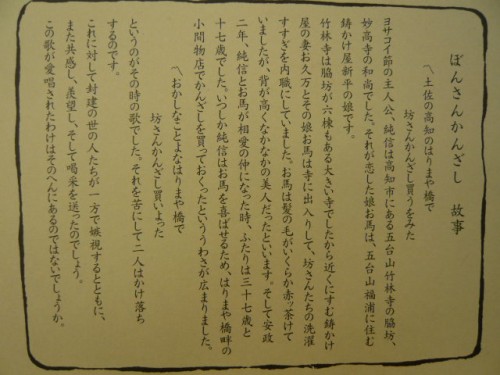 ぼんさんかんざし 故事
〽土佐の高知のはりまや橋で
坊さんかんざし買うをみた
ヨサコイ節の主人公、純信は高知市にある五台山竹林寺の脇坊、
妙高寺の和尚でした。それが恋した娘お馬は、五台山福浦に住む
鋳かけ屋新平の娘です。
竹林寺は脇坊が六棟もある大きい寺でしたから近くにすむ鋳かけ
屋の妻お久万とその娘お馬は寺に出入りして、坊さんたちの洗濯
すすぎを内職にしていました。お馬は髪の毛がいくらか赤ッ茶けて
いましたが、背が高くなかなかの美人だったといいます。そして安政
二年、純信とお馬が相愛の仲になった時、ふたりは三十七歳と
十七歳でした。いつしか純信はお馬を喜ばせるため、はりまや橋畔の
小間物店でかんざしを買っておくったといううわさが広まりました。
〽おかしなことよなはりまや橋で
坊さんかんざし買いよった
というのがその時の歌でした。それを苦にして二人はかけ落ち
するのです。
これに対して封建の世の人たちが一方で嫉視するとともに、
また共感し、羨望し、そして喝采を送ったのでしょう。
この歌が愛唱されたわけはそのへんにあるのではないでしょうか。